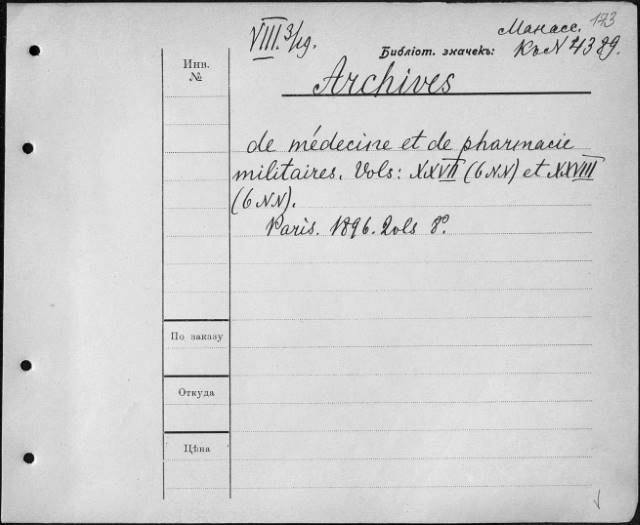 173
Манасс.
VIII.3/19.
Библіот. значекъ: К.N 4389.
Инв.
№
Archives
de médecine et de pharmacie
militaires. Vols: XXVII (6 NN) et XXVIII
(6 NN).
Paris. 1896. 2vols 8º.
По заказу
Откуда
Цѣна